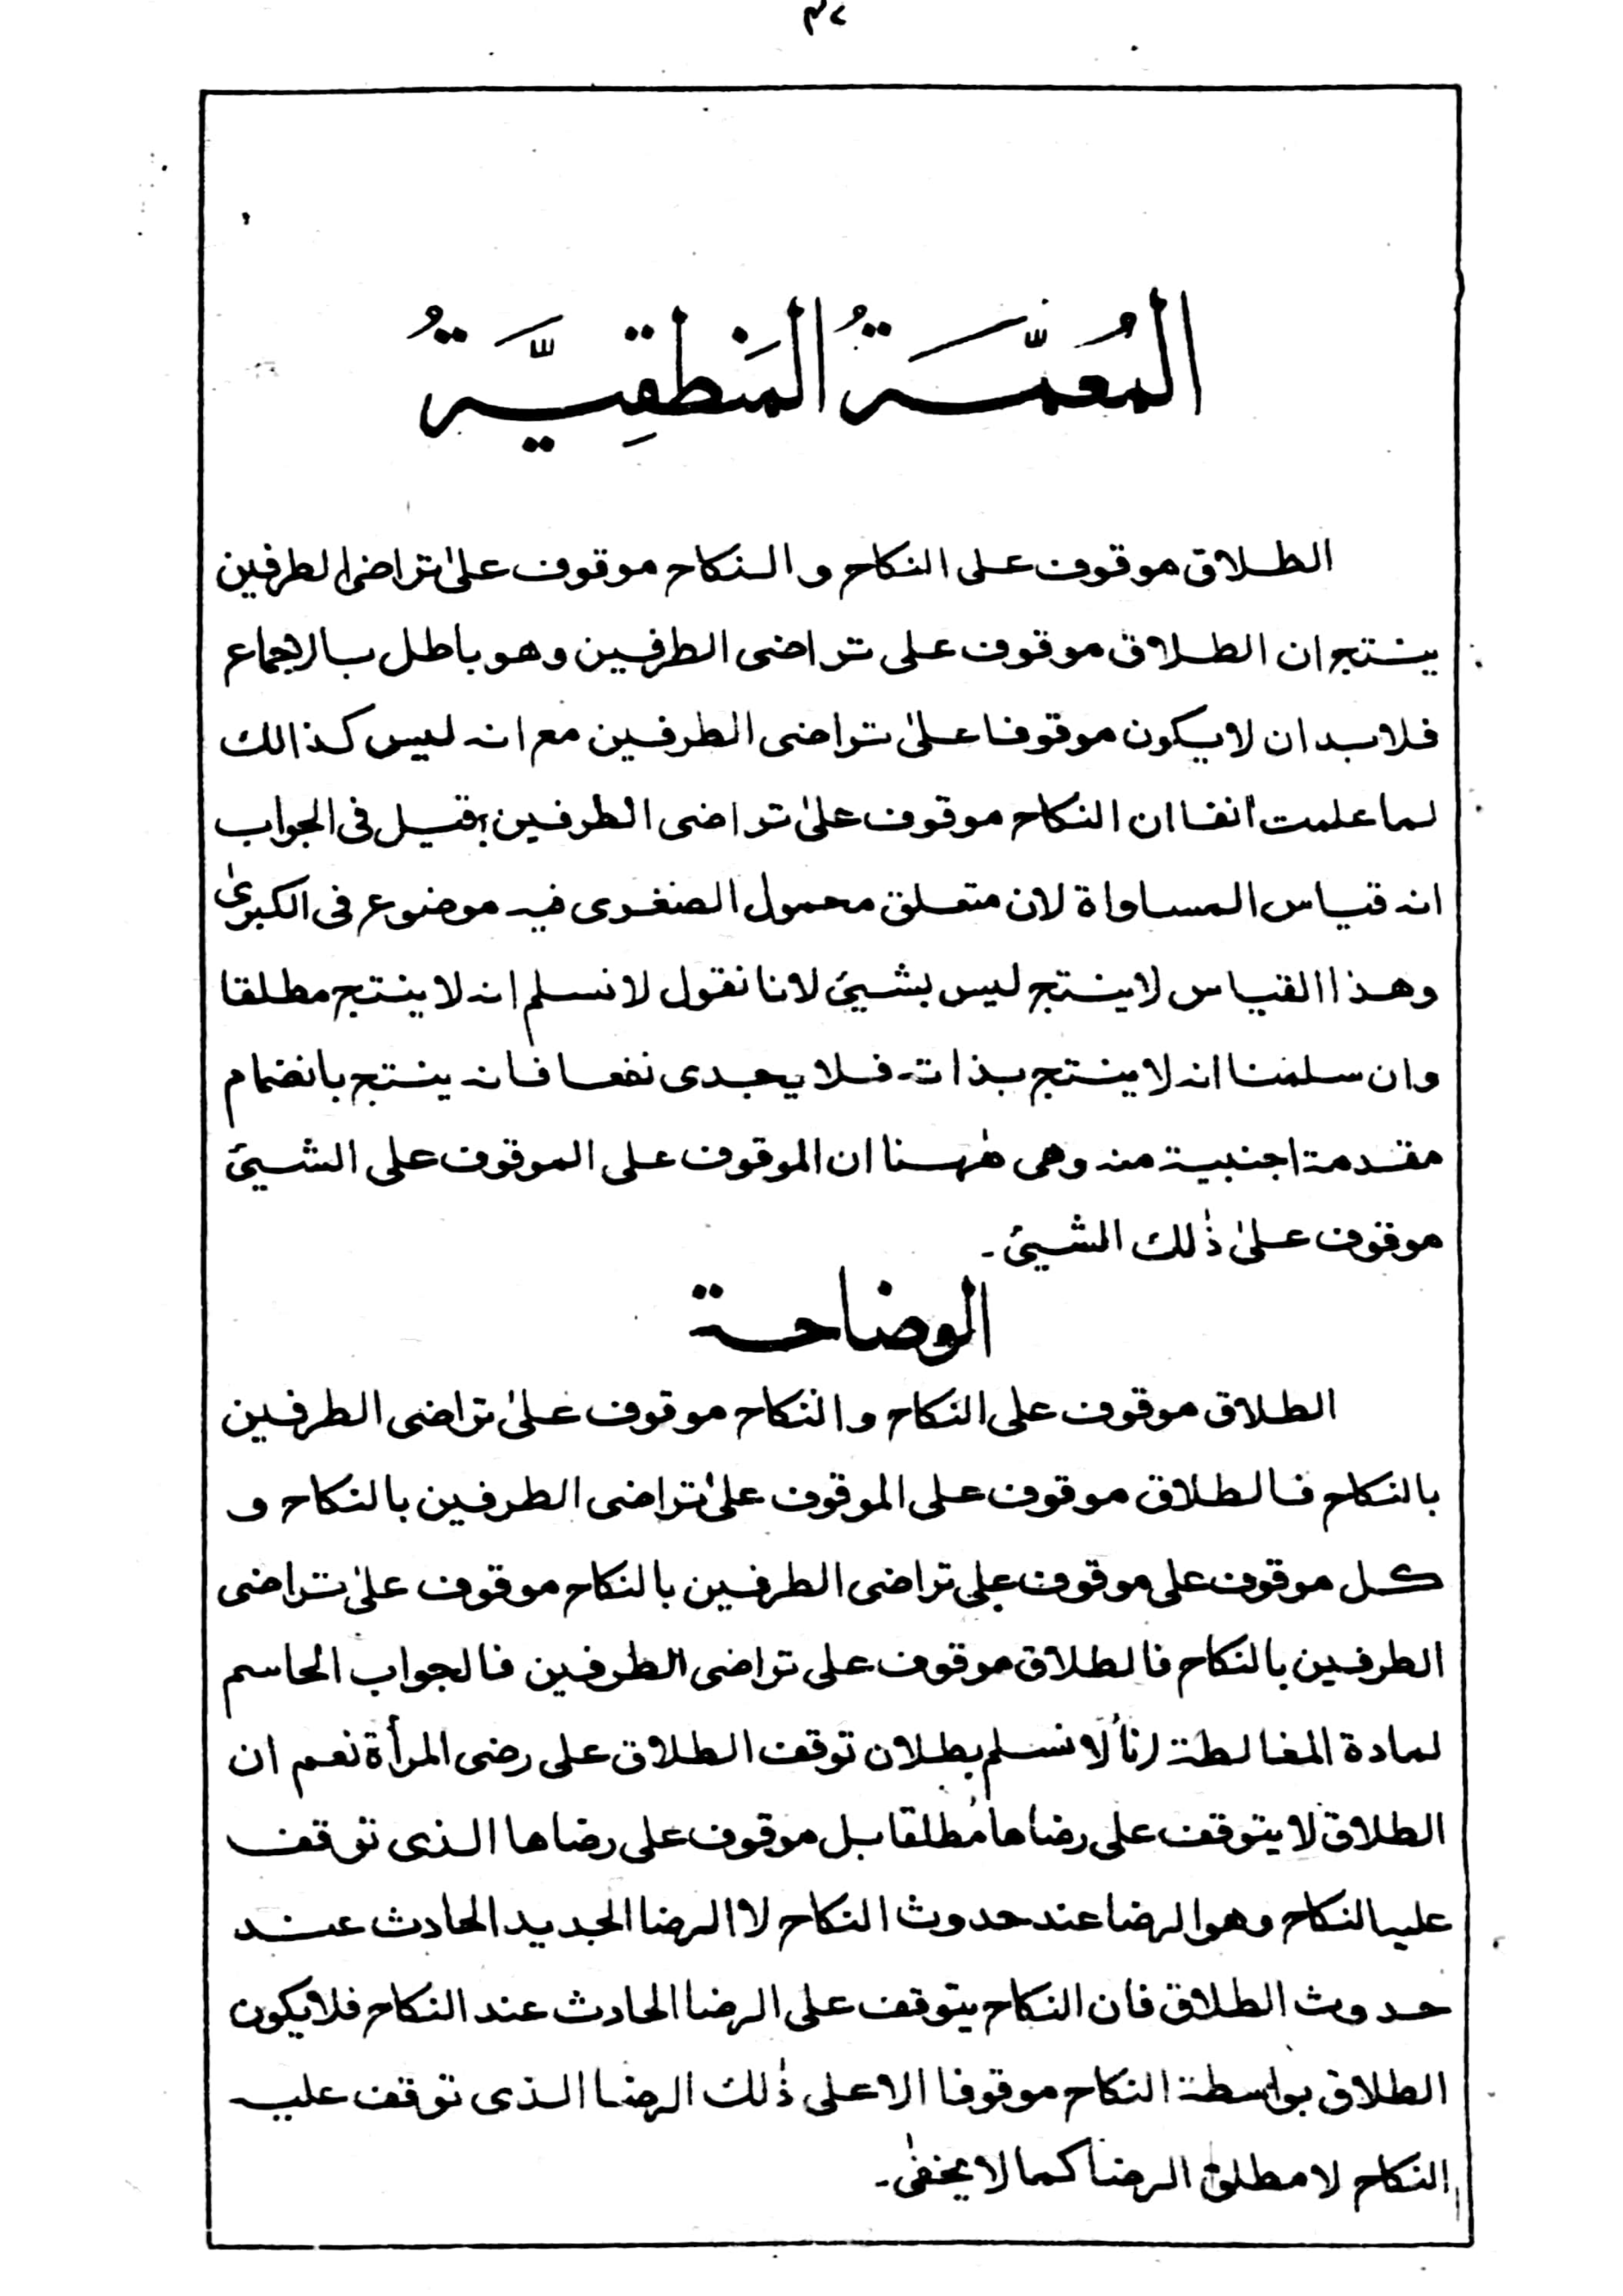 المُعَمَّةُ المَنْطِقِيَّةُ
الطلاق موقوف على النكاح والنكاح موقوف علىٰ تراضى الطرفين
ينتج ان الطلاق موقوف على تراضى الطرفين وهو باطل بالاجماع
فلابد ان لا يكون موقوفا علىٰ تراضى الطرفين مع انه ليس كذالك
لما علمت انفا ان النكاح موقوف علىٰ تراضى الطرفين، فقيل فى الجواب
انه قياس المساواة لان متعلق محمول الصغرى فيه موضوع فى الكبرىٰ
وهذا القياس لا ينتج ليس بشيئ لانا نقول لا نسلم انه لا ينتج مطلقا
وان سلمنا انه لا ينتج بذاته فلا يجدى نفعا فانه ينتج بانضمام
مقدمة اجنبية منه وهى هٰهنا ان الموقوف على الموقوف على الشيئ
موقوف علىٰ ذٰلك الشيئ ۔
الوضاحة
الطلاق موقوف على النكاح والنكاح موقوف علىٰ تراضى الطرفين
بالنكاح فالطلاق موقوف على الموقوف علىٰ تراضى الطرفين بالنكاح و
كل موقوف على موقوف على تراضى الطرفين بالنكاح موقوف علىٰ تراضى
الطرفين بالنكاح فالطلاق موقوف على تراضى الطرفين فالجواب الحاسم
لمادة المغالطة انا لا نسلم بطلان توقف الطلاق على رضى المرأة نعم ان
الطلاق لا يتوقف على رضاها مطلقا بل موقوف على رضاها الذى توقف
عليه النكاح وهو الرضا عند حدوث النكاح لا الرضا الجديد الحادث عند
حدوث الطلاق فان النكاح يتوقف على الرضا الحادث عند النكاح فلا يكون
الطلاق بواسطة النكاح موقوفا الا على ذٰلك الرضا الذى توقف عليه
النكاح لا مطلق الرضا كما لا يخفىٰ ۔